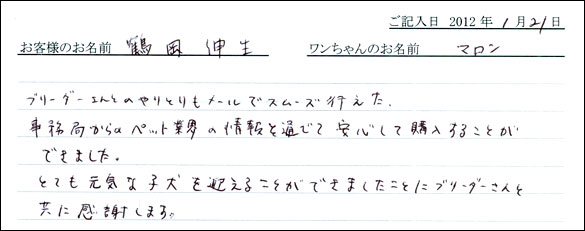 ご記入日 2012 年 1 月 21 日
お客様のお名前 鶴岡 伸生 ワンちゃんのお名前 マロン
ブリーダーさんとのやりとりもメールでスムーズ行えた.
事務局からのペット業界の情報を通じて安心して購入することが
できました。
とても元気な子犬を迎えることができましたことにブリーダーさんと
共に感謝します。